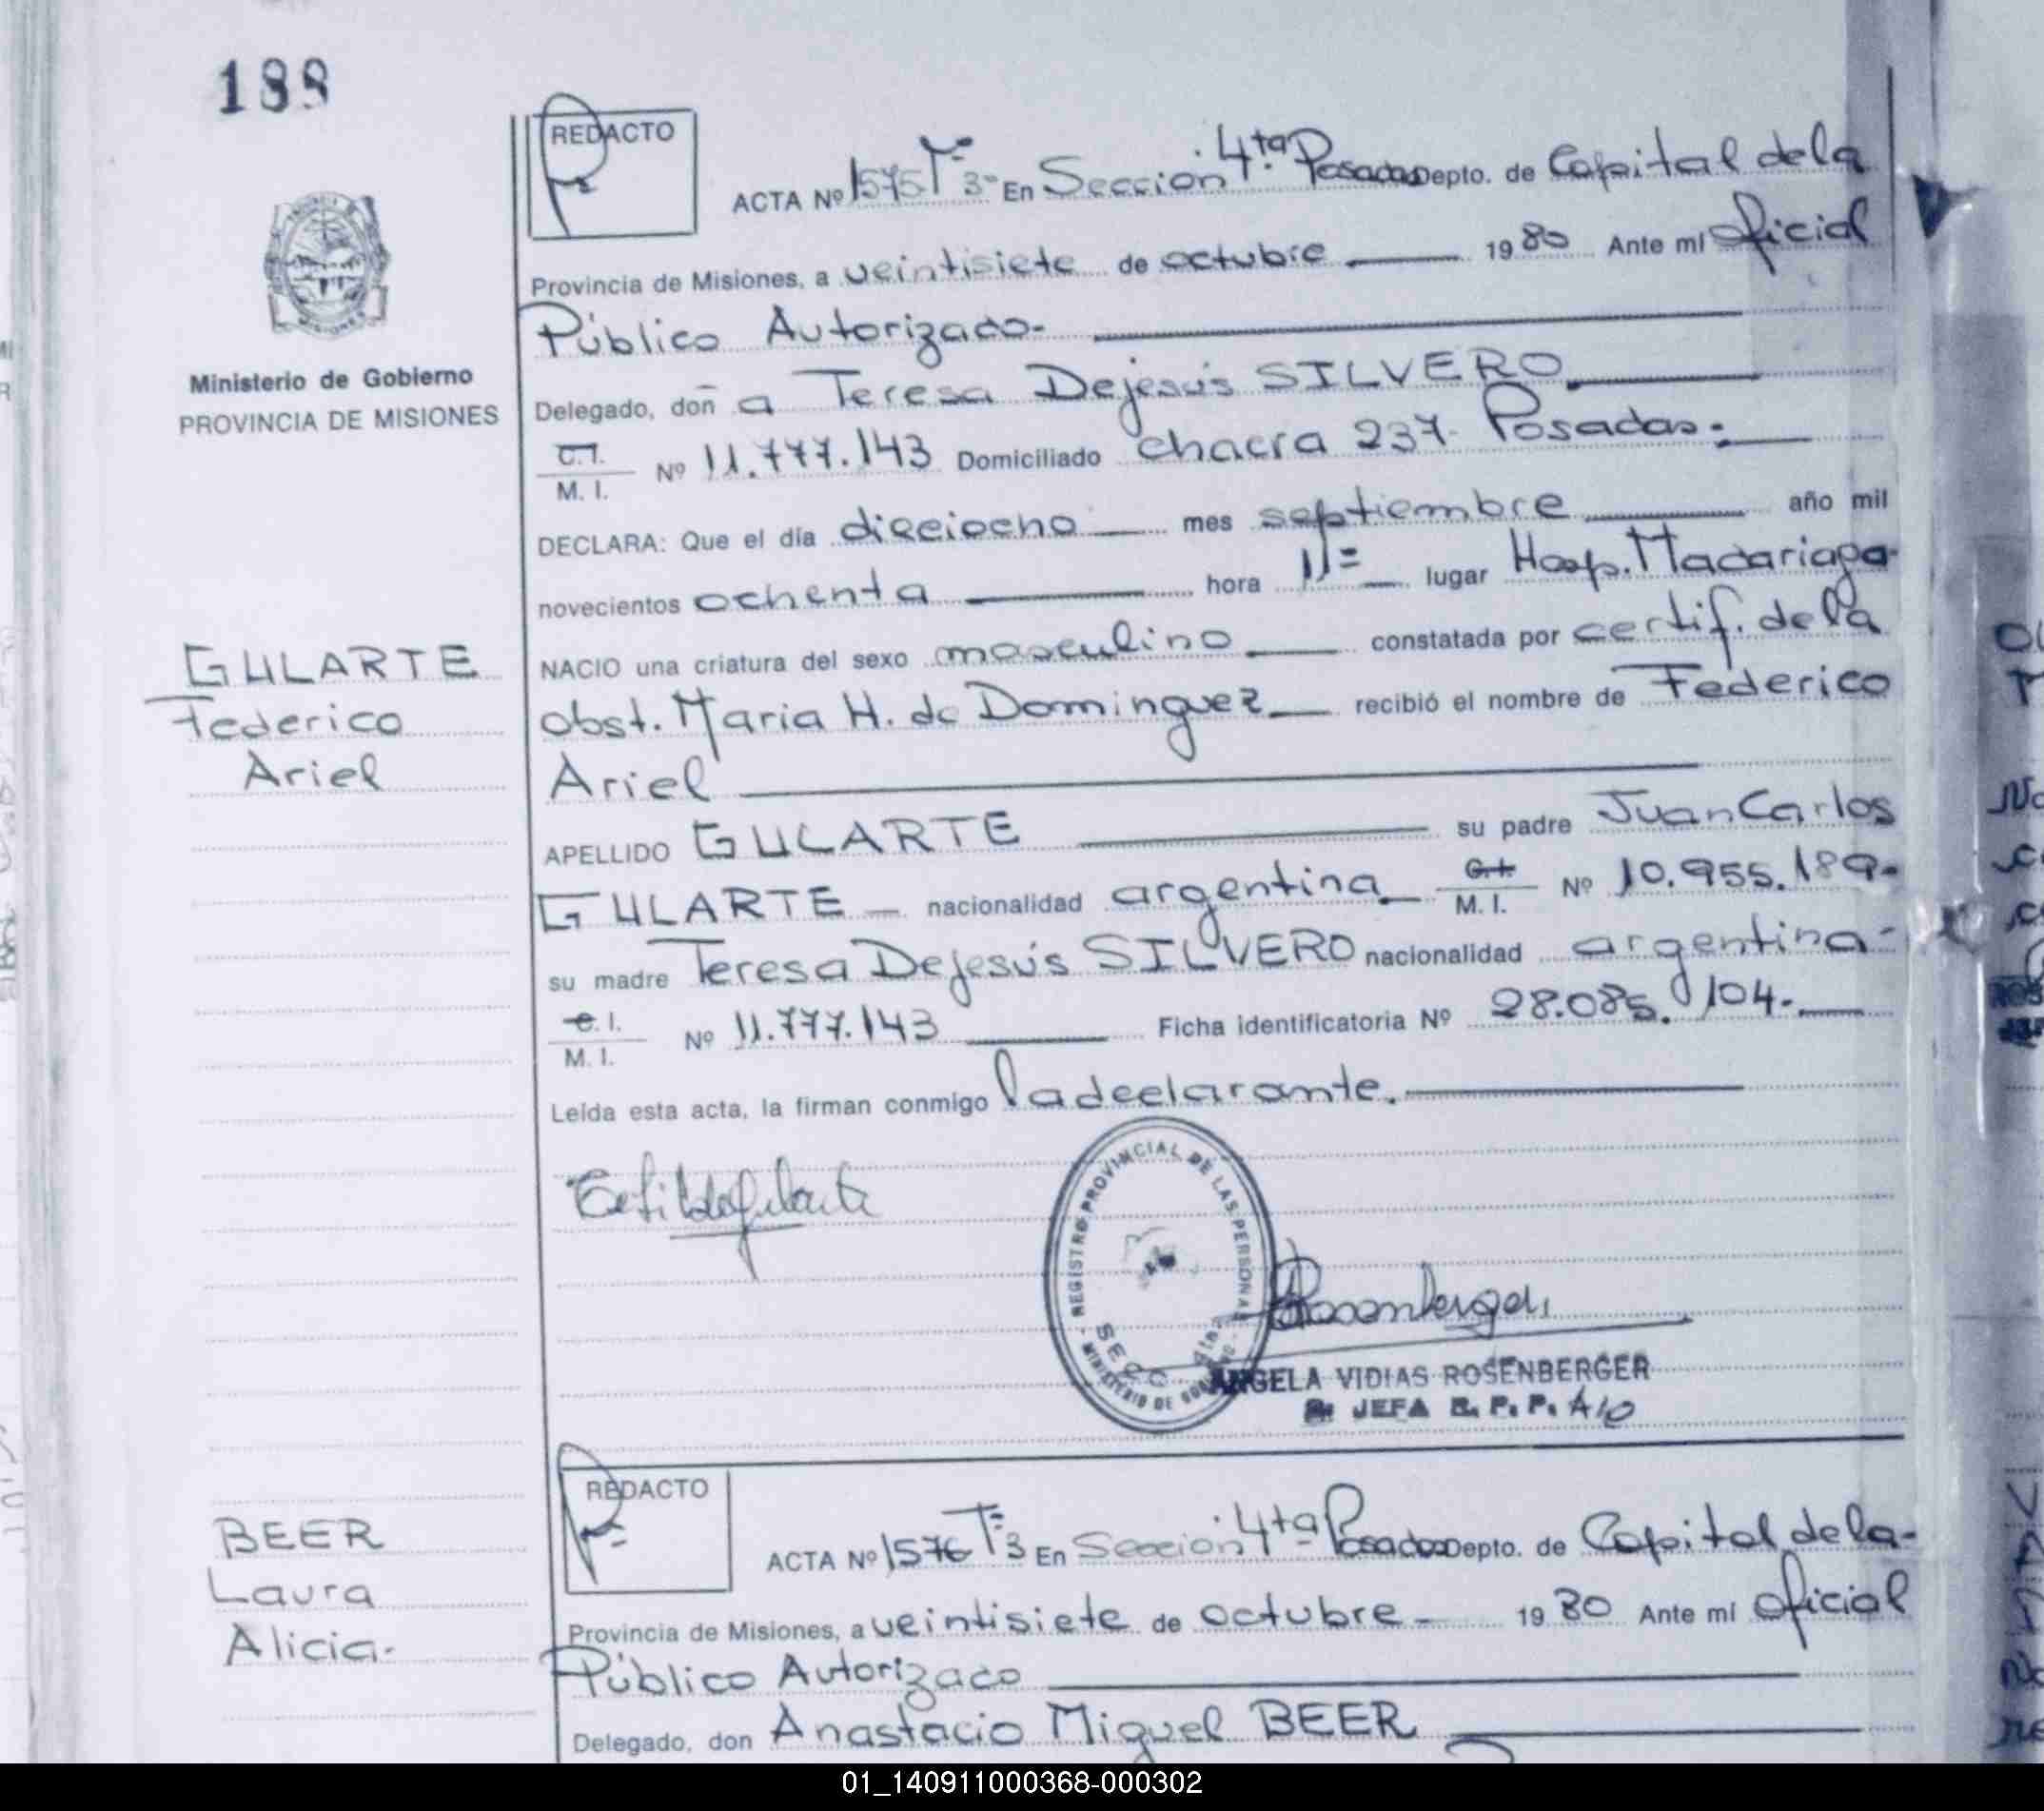 188
REDACTO
ACTA Nº 1575 Tº 3º En Sección 4ta. Posadas Depto. de Capital de la
Provincia de Misiones, a veintisiete de octubre 1980 Ante mí Oficial
Público Autorizado.
Ministerio de Gobierno
PROVINCIA DE MISIONES
Delegado, don a Teresa Dejesús SILVERO
C.I. M. I. Nº 11.777.143 Domiciliado chacra 237 Posadas.
DECLARA: Que el día dieciocho mes septiembre año mil
novecientos ochenta hora 11= lugar Hosp. Madariaga
GULARTE
Federico
Ariel
NACIO una criatura del sexo masculino constatada por certif. de la
obst. Maria H. de Dominguez recibió el nombre de Federico
Ariel
APELLIDO GULARTE su padre Juan Carlos
GULARTE nacionalidad argentina C.I. M. I. Nº 10.955.189.
su madre Teresa Dejesús SILVERO nacionalidad argentina
C.I. M. I. Nº 11.777.143 Ficha identificatoria Nº 28.085.104.
Leída esta acta, la firman conmigo la declarante.
REGISTRO PROVINCIAL DE LAS PERSONAS
SECC 4ta.
MINISTERIO DE GOBIERNO
Rosenberger
ANGELA VIDIAS ROSENBERGER
JEFA R. P. P. A/C
BEER
Laura
Alicia.
REDACTO
ACTA Nº 1576 Tº 3 En Sección 4ta Posadas Depto. de Capital de la
Provincia de Misiones, a veintisiete de octubre 1980 Ante mí oficial
Público Autorizado
Delegado, don Anastacio Miguel BEER
01_140911000368-000302